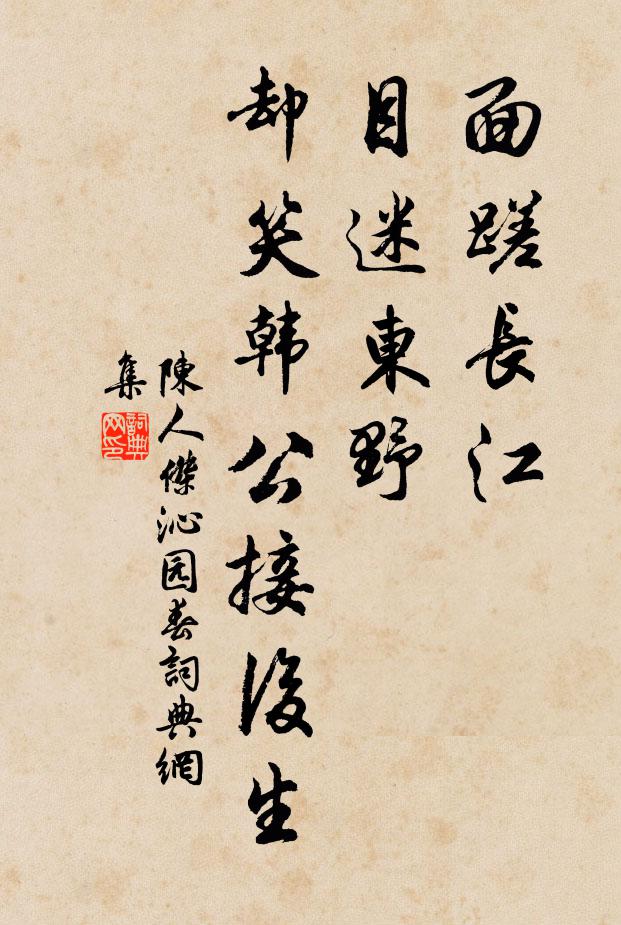 面蹉長江
目迷東野
却笑韩公接後生
陳人傑沁园春詞典網
集
詞典
网印